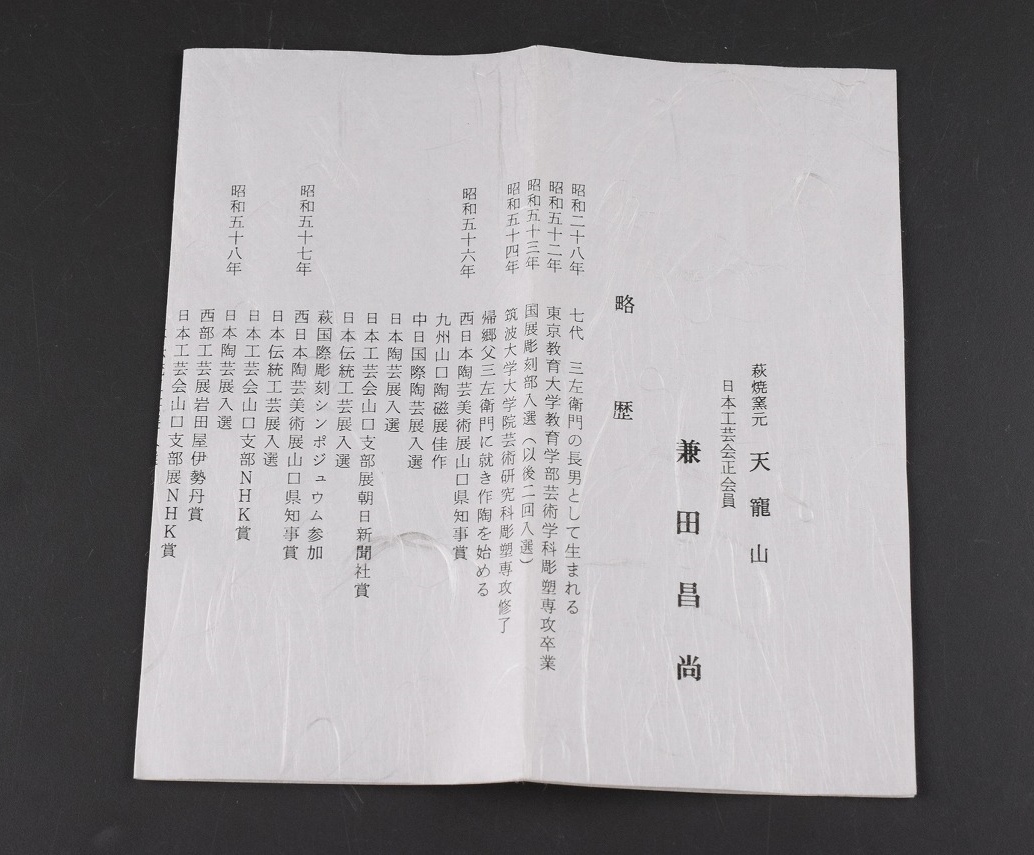 萩焼窯元 天寵山
日本工芸会正会員
兼田昌尚
略歴
昭和二十八年 七代 三左衛門の長男として生まれる
昭和五十二年 東京教育大学教育学部芸術学科彫塑専攻卒業
昭和五十三年 国展彫刻部入選（以後二回入選）
昭和五十四年 筑波大学大学院芸術研究科彫塑専攻修了
帰郷父三左衛門に就き作陶を始める
昭和五十六年 西日本陶芸美術展山口県知事賞
九州山口陶磁展佳作
中日国際陶芸展入選
日本陶芸展入選
日本工芸会山口支部展朝日新聞社賞
日本伝統工芸展入選
萩国際彫刻シンポジュウム参加
昭和五十七年 西日本陶芸美術展山口県知事賞
日本伝統工芸展入選
日本工芸会山口支部NHK賞
日本陶芸展入選
昭和五十八年 西部工芸展岩田屋伊勢丹賞
日本工芸会山口支部展NHK賞